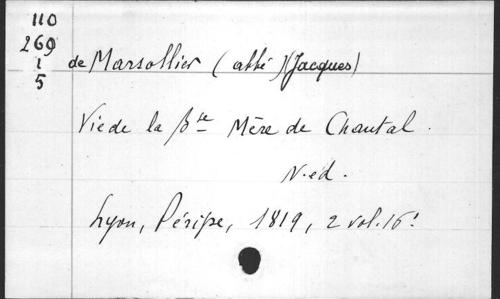 110
269
1
5
de Marsollier (abbé) (Jacques)
Vie de la Bse Mère de Chantal.
N. ed.
Lyon, Périsse, 1819, 2 vol. 16°